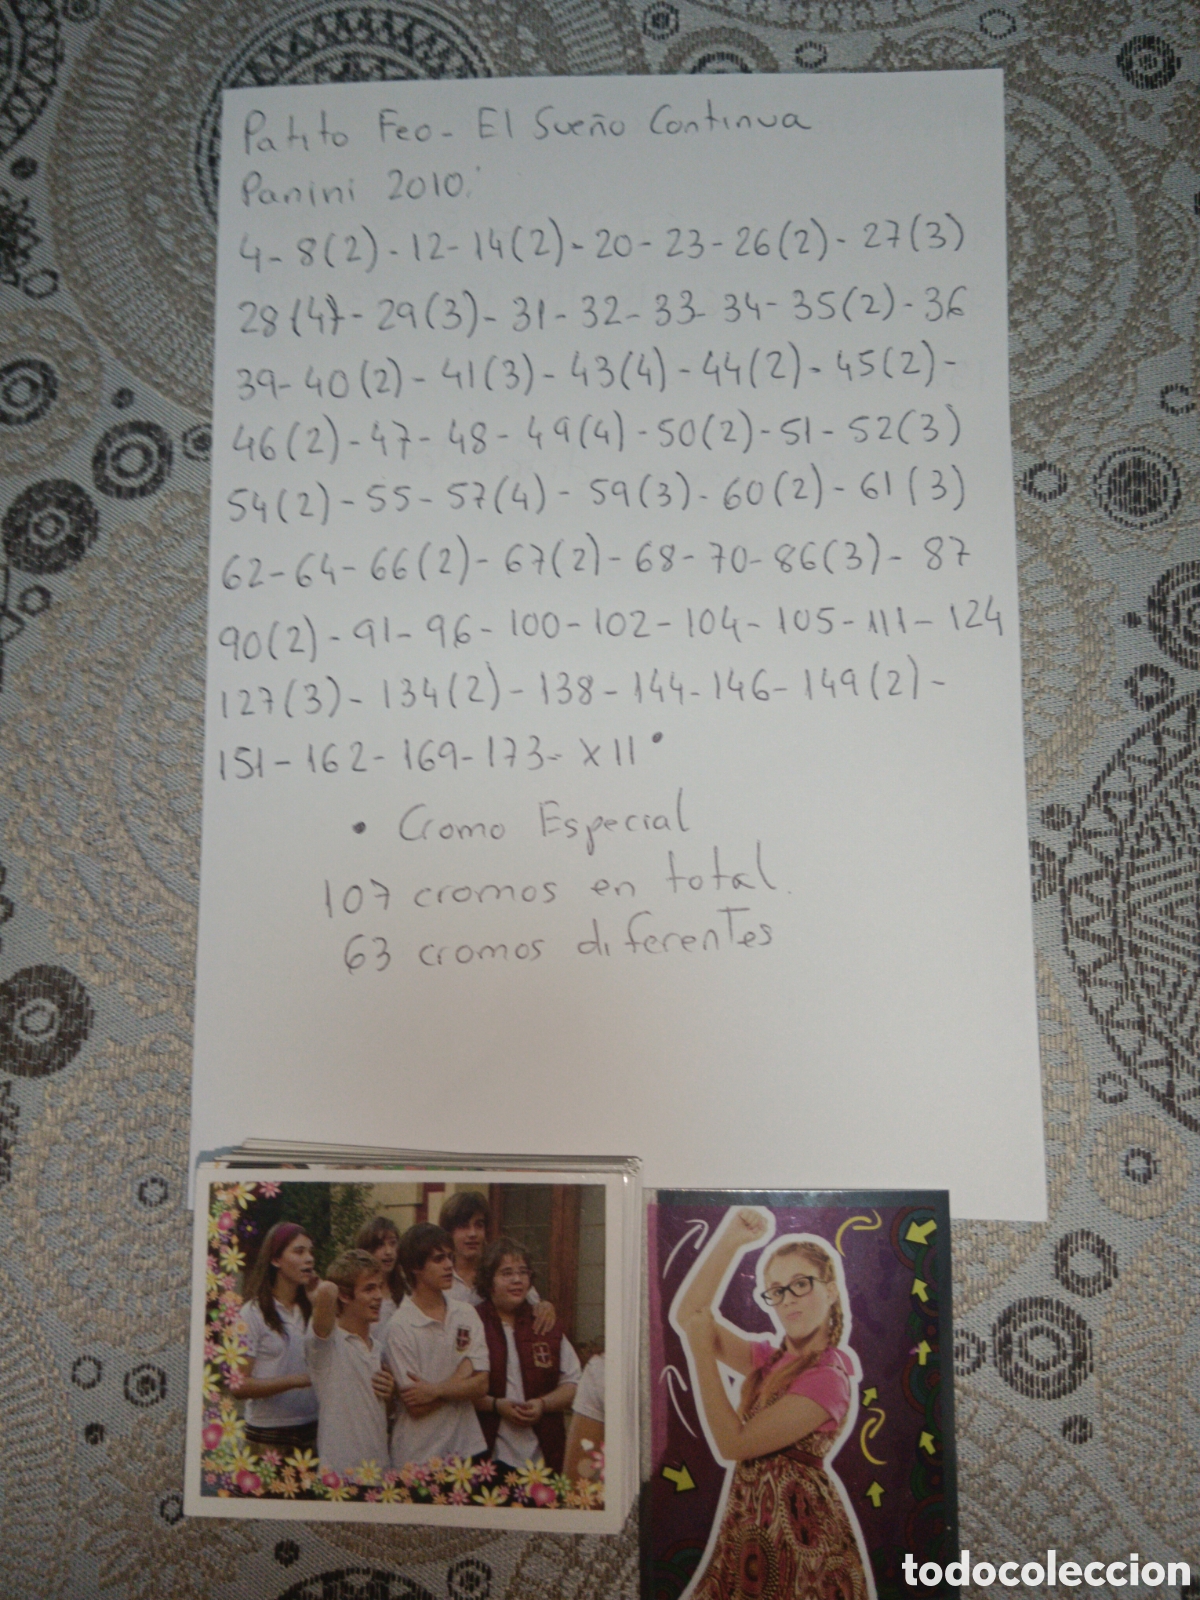 Patito Feo - El Sueño Continua
Panini 2010.
4 - 8(2) - 12 - 14(2) - 20 - 23 - 26(2) - 27(3)
28(4) - 29(3) - 31 - 32 - 33 - 34 - 35(2) - 36
39 - 40(2) - 41(3) - 43(4) - 44(2) - 45(2) -
46(2) - 47 - 48 - 49(4) - 50(2) - 51 - 52(3)
54(2) - 55 - 57(4) - 59(3) - 60(2) - 61(3)
62 - 64 - 66(2) - 67(2) - 68 - 70 - 86(3) - 87
90(2) - 91 - 96 - 100 - 102 - 104 - 105 - 111 - 124
127(3) - 134(2) - 138 - 144 - 146 - 149(2) -
151 - 162 - 169 - 173 - X11•
• Cromo Especial
107 cromos en total.
63 cromos diferentes
todocoleccion